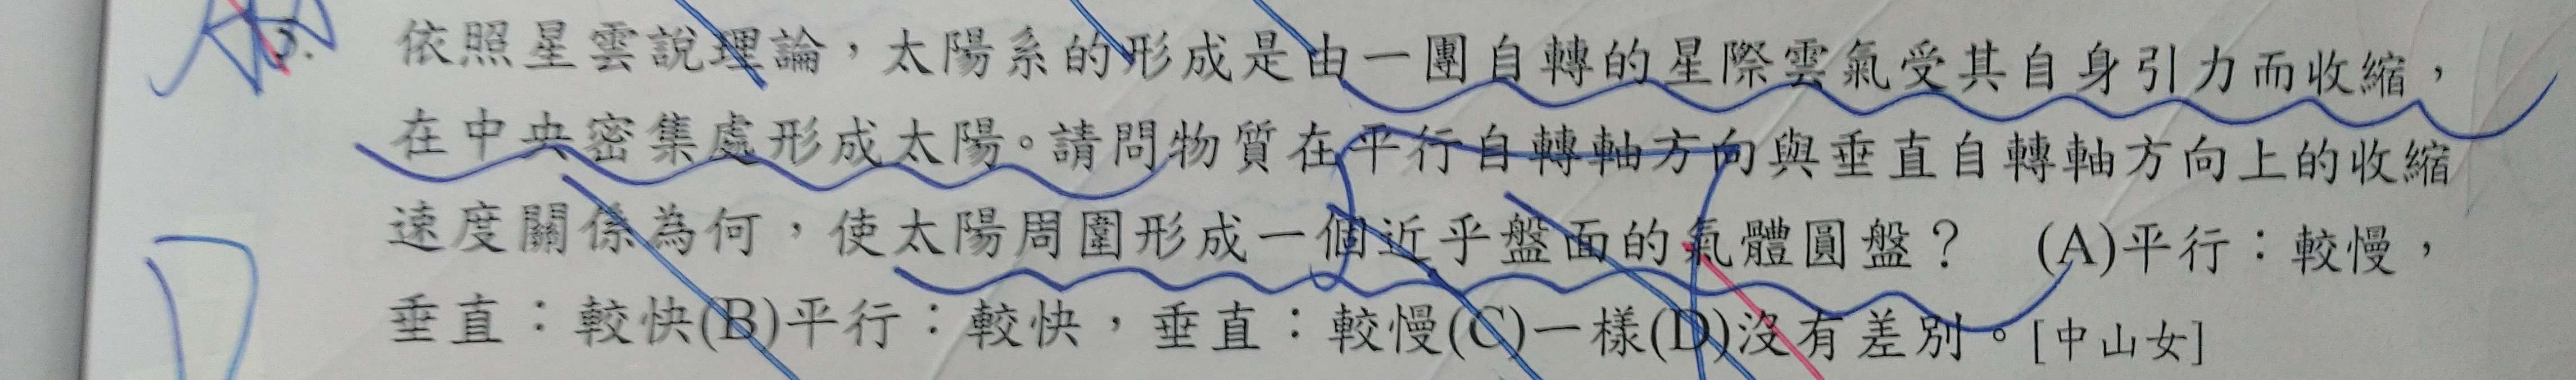 5. 依照星雲說理論，太陽系的形成是由一團自轉的星際雲氣受其自身引力而收縮，
在中央密集處形成太陽。請問物質在平行自轉軸方向與垂直自轉軸方向上的收縮
速度關係為何，使太陽周圍形成一個近乎盤面的氣體圓盤？　(A)平行：較慢，
垂直：較快(B)平行：較快，垂直：較慢(C)一樣(D)沒有差別。[中山女]